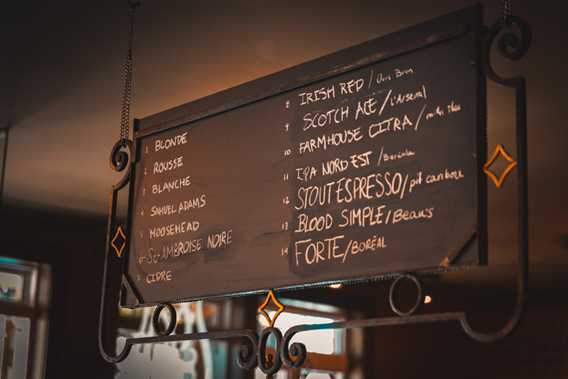 1 BLONDE
2 ROUSSE
3 BLANCHE
4 SAMUEL ADAMS
5 MOOSEHEAD
6 ST-AMBROISE NOIRE
7 CIDRE
8 IRISH RED /
9 SCOTCH ACE / L'Arsenal
10 FARMHOUSE CITRA /
11 IPA NORD EST / Boréale
12 STOUT ESPRESSO / pit caribou
13 BLOOD SIMPLE / Beaus
14 FORTE / BORÉAL